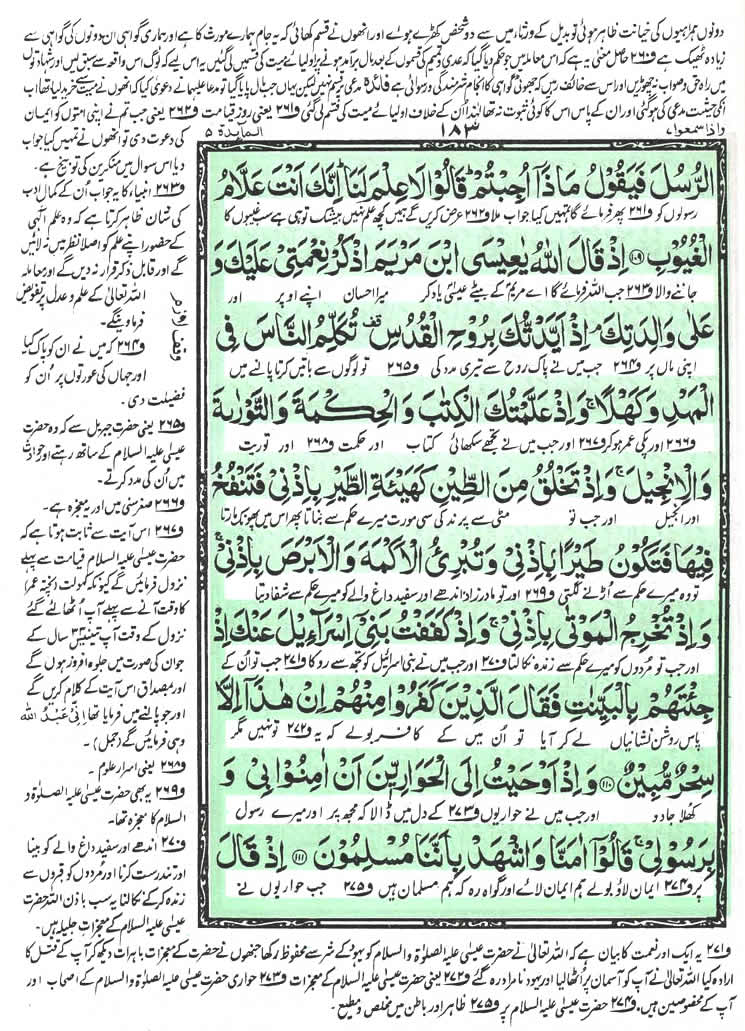 دونوں ہمراہیوں کی خیانت ظاہر ہوئی تو بدیل کے ورثاء میں سے دو شخص کھڑے ہوئے اور انھوں نے قسم کھائی کہ یہ جام ہمارے مورث کا ہے اور ہماری گواہی ان دونوں کی گواہی سے
زیادہ ٹھیک ہے ف۲۶۰ حاصل معنی یہ ہے کہ اس معاملہ میں جو حکم دیا گیا کہ عدی و تمیم کی قسموں کے بعد مال برآمد ہونے پر اولیائے میت کی قسمیں لی گئیں یہ اس لیے کہ لوگ اس واقعہ سے سبق لیں اور شہادتوں
میں راہ حق و صواب نہ چھوڑیں اور اس سے خائف رہیں کہ جھوٹی گواہی کا انجام شرمندگی و رسوائی ہے فائدہ مدعی پر قسم نہیں لیکن یہاں جب مال پایا گیا تو مدعا علیہما نے دعویٰ کیا کہ انھوں نے میت سے خرید لیا تھا اب
انکی حیثیت مدعی کی ہوگئی اور ان کے پاس اس کا کوئی ثبوت نہ تھا لہٰذا اُن کے خلاف اولیائے میت کی قسم لی گئی ف۲۶۱ یعنی روز قیامت ف۲۶۲ یعنی جب تم نے اپنی امتوں کو ایمان
واذا سمعوا ۷
۱۸۳
المآئدۃ ۵
کی دعوت دی تو انھوں نے تمہیں کیا جواب
دیا اس سوال میں منکرین کی توبیخ ہے۔
ف۲۶۳ انبیاء کا یہ جواب اُن کے کمال ادب
کی شان ظاہر کرتا ہے کہ وہ علم الٰہی
کے حضور اپنے علم کو اصلا نظر میں نہ لائیں
گے اور قابل ذکر قرار نہ دیں گے اور معاملہ
اللہ تعالیٰ کے علم و عدل پر تفویض
فرما دینگے۔
ف۲۶۴ کہ میں نے ان کو پاک کیا
اور جہاں کی عورتوں پر اُن کو
فضیلت دی۔
ف۲۶۵ یعنی حضرت جبریل سے کہ وہ حضرت
عیسیٰ علیہ السلام کے ساتھ رہتے اور حوادث
میں اُن کی مدد کرتے۔
ف۲۶۶ صغر سنی میں اور یہ معجزہ ہے۔
ف۲۶۷ اس آیت سے ثابت ہوتا ہے کہ
حضرت عیسیٰ علیہ السلام قیامت سے پہلے
نزول فرمائیں گے کیونکہ کہولت (پختہ عمر) کا
وقت آنے سے پہلے آپ اُٹھا لئے گئے
نزول کے وقت آپ تینتیس ۳۳ سال کے
جوان کی صورت میں جلوہ افروز ہوں گے
اور بمصداق اس آیت کے کلام کریں گے
اور جو پالنے میں فرمایا تھا اِنِّیْ عَبْدُ اللہ
وہی فرمائیں گے (جمل)۔
ف۲۶۸ یعنی اسرار علوم۔
ف۲۶۹ یہ بھی حضرت عیسیٰ علیہ الصلوٰۃ و
السلام کا معجزہ تھا۔
ف۲۷۰ اندھے اور سفید داغ والے کو بینا
اور تندرست کرنا اور مردوں کو قبروں سے
زندہ کرکے نکالنا یہ سب باذن اللہ حضرت
عیسیٰ علیہ السلام کے معجزات جلیلہ ہیں۔
الرُّسُلَ فَیَقُوْلُ مَاذَاۤ اُجِبْتُمْ ؕ قَالُوْا لَا عِلْمَ لَنَا ؕ اِنَّكَ اَنْتَ عَلَّامُ
رسولوں کو ف۲۶۱ پھر فرمائے گا تمہیں کیا جواب ملا ف۲۶۲ عرض کریں گے ہمیں کچھ علم نہیں بیشک تو ہی ہے سب غیبوں کا
الْغُیُوْبِ ﴿۱۰۹﴾ اِذْ قَالَ اللّٰهُ یٰعِیْسَى ابْنَ مَرْیَمَ اذْكُرْ نِعْمَتِیْ عَلَیْكَ وَ
جاننے والا ف۲۶۳ جب اللہ فرمائے گا اے مریم کے بیٹے عیسیٰ یاد کر میرا احسان اپنے اوپر اور
عَلٰى وَالِدَتِكَ ۘ اِذْ اَیَّدْتُّكَ بِرُوْحِ الْقُدُسِ ۫ تُكَلِّمُ النَّاسَ فِی
اپنی ماں پر ف۲۶۴ جب میں نے پاک روح سے تیری مدد کی ف۲۶۵ تو لوگوں سے باتیں کرتا پالنے میں
الْمَهْدِ وَ كَهْلًا ۚ وَ اِذْ عَلَّمْتُكَ الْكِتٰبَ وَ الْحِكْمَةَ وَ التَّوْرٰىةَ
ف۲۶۶ اور پکی عمر ہو کر ف۲۶۷ اور جب میں نے تجھے سکھائی کتاب اور حکمت ف۲۶۸ اور توریت
وَ الْاِنْجِیْلَ ۚ وَ اِذْ تَخْلُقُ مِنَ الطِّیْنِ كَهَیْـَٔةِ الطَّیْرِ بِاِذْنِیْ فَتَنْفُخُ
اور انجیل اور جب تو مٹی سے پرند کی سی مورت میرے حکم سے بناتا پھر اس میں پھونک مارتا
فِیْهَا فَتَكُوْنُ طَیْرًۢا بِاِذْنِیْ وَ تُبْرِئُ الْاَكْمَهَ وَ الْاَبْرَصَ بِاِذْنِیْ ۚ
تو وہ میرے حکم سے اُڑنے لگتی ف۲۶۹ اور تو مادر زاد اندھے اور سفید داغ والے کو میرے حکم سے شفا دیتا
وَ اِذْ تُخْرِجُ الْمَوْتٰى بِاِذْنِیْ ۚ وَ اِذْ كَفَفْتُ بَنِیْۤ اِسْرَآءِیْلَ عَنْكَ اِذْ
اور جب تو مُردوں کو میرے حکم سے زندہ نکالتا ف۲۷۰ اور جب میں نے بنی اسرائیل کو تجھ سے روکا ف۲۷۱ جب تو اُن کے
جِئْتَهُمْ بِالْبَیِّنٰتِ فَقَالَ الَّذِیْنَ كَفَرُوْا مِنْهُمْ اِنْ هٰذَاۤ اِلَّا
پاس روشن نشانیاں لے کر آیا تو اُن میں کے کافر بولے کہ یہ ف۲۷۲ تو نہیں مگر
سِحْرٌ مُّبِیْنٌ ﴿۱۱۰﴾ وَ اِذْ اَوْحَیْتُ اِلَى الْحَوَارِیّٖنَ اَنْ اٰمِنُوْا بِیْ وَ
کھلا جادو اور جب میں نے حواریوں ف۲۷۳ کے دل میں ڈالا کہ مجھ پر اور میرے رسول
بِرَسُوْلِیْ ۚ قَالُوْۤا اٰمَنَّا وَ اشْهَدْ بِاَنَّنَا مُسْلِمُوْنَ ﴿۱۱۱﴾ اِذْ قَالَ
پر ف۲۷۴ ایمان لاؤ بولے ہم ایمان لائے اور گواہ رہ کہ ہم مسلمان ہیں ف۲۷۵ جب حواریوں نے
ف۲۷۱ یہ ایک اور نعمت کا بیان ہے کہ اللہ تعالیٰ نے حضرت عیسیٰ علیہ الصلوٰۃ والسلام کو یہود کے شر سے محفوظ رکھا جنھوں نے حضرت کے معجزات باہرات دیکھ کر آپ کے قتل کا
ارادہ کیا اللہ تعالیٰ نے آپ کو آسمان پر اُٹھا لیا اور یہود نامراد رہ گئے ف۲۷۲ یعنی حضرت عیسیٰ علیہ الصلوٰۃ والسلام کے معجزات ف۲۷۳ حواری حضرت عیسیٰ علیہ الصلوٰۃ والسلام کے اصحاب اور
آپ کے مخصوصین ہیں۔ ف۲۷۴ حضرت عیسیٰ علیہ السلام پر ف۲۷۵ ظاہر اور باطن میں مخلص و مطیع۔